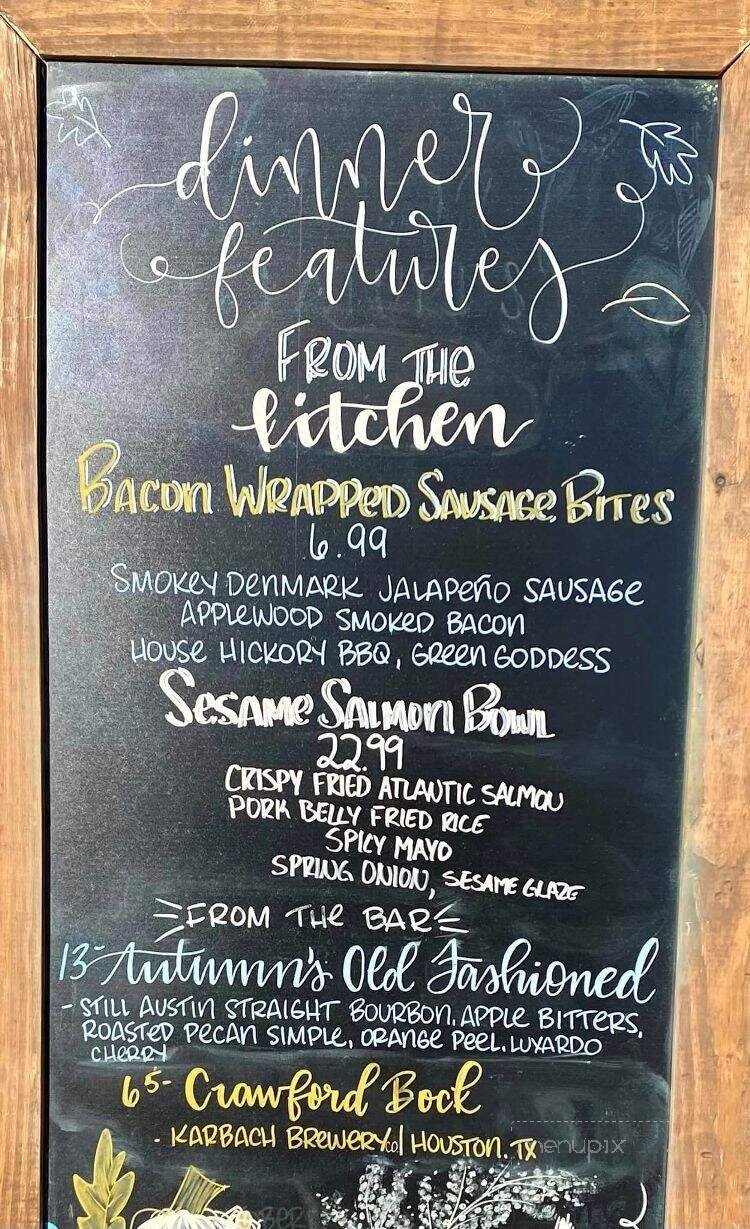 dinner
features
FROM THE
kitchen
BACON WRAPPED SAUSAGE BITES
6.99
SMOKEY DENMARK JALAPEÑO SAUSAGE
APPLEWOOD SMOKED BACON
HOUSE HICKORY BBQ, GREEN GODDESS
SESAME SALMON BOWL
22.99
CRISPY FRIED ATLANTIC SALMON
PORK BELLY FRIED RICE
SPICY MAYO
SPRING ONION, SESAME GLAZE
FROM THE BAR
13- Autumn's Old Fashioned
- STILL AUSTIN STRAIGHT BOURBON, APPLE BITTERS,
ROASTED PECAN SIMPLE, ORANGE PEEL, LUXARDO
CHERRY
6 5- Crawford Bock
- KARBACH BREWERY CO| HOUSTON, TX
menupix